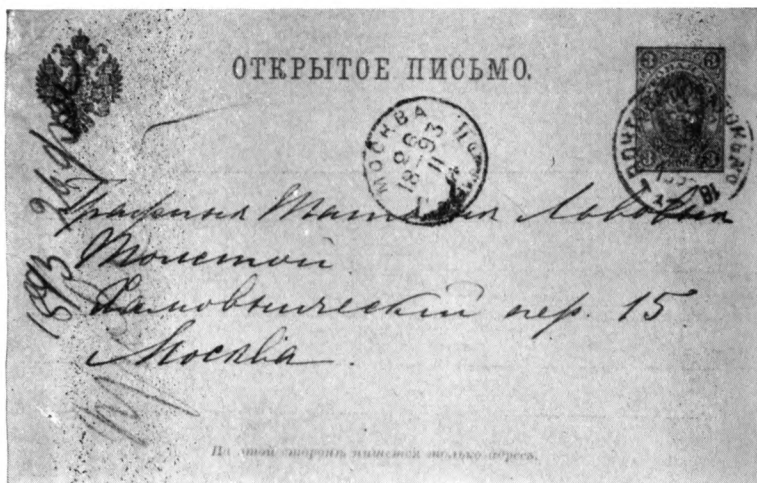 ОТКРЫТОЕ ПИСЬМО.
3 3
МОСКВА
26
18-93
11
Графиня Татьяна Львовна
Толстой
Хамовнический пер. 15
Москва.
1893
На этой сторонѣ пишется только адресъ.